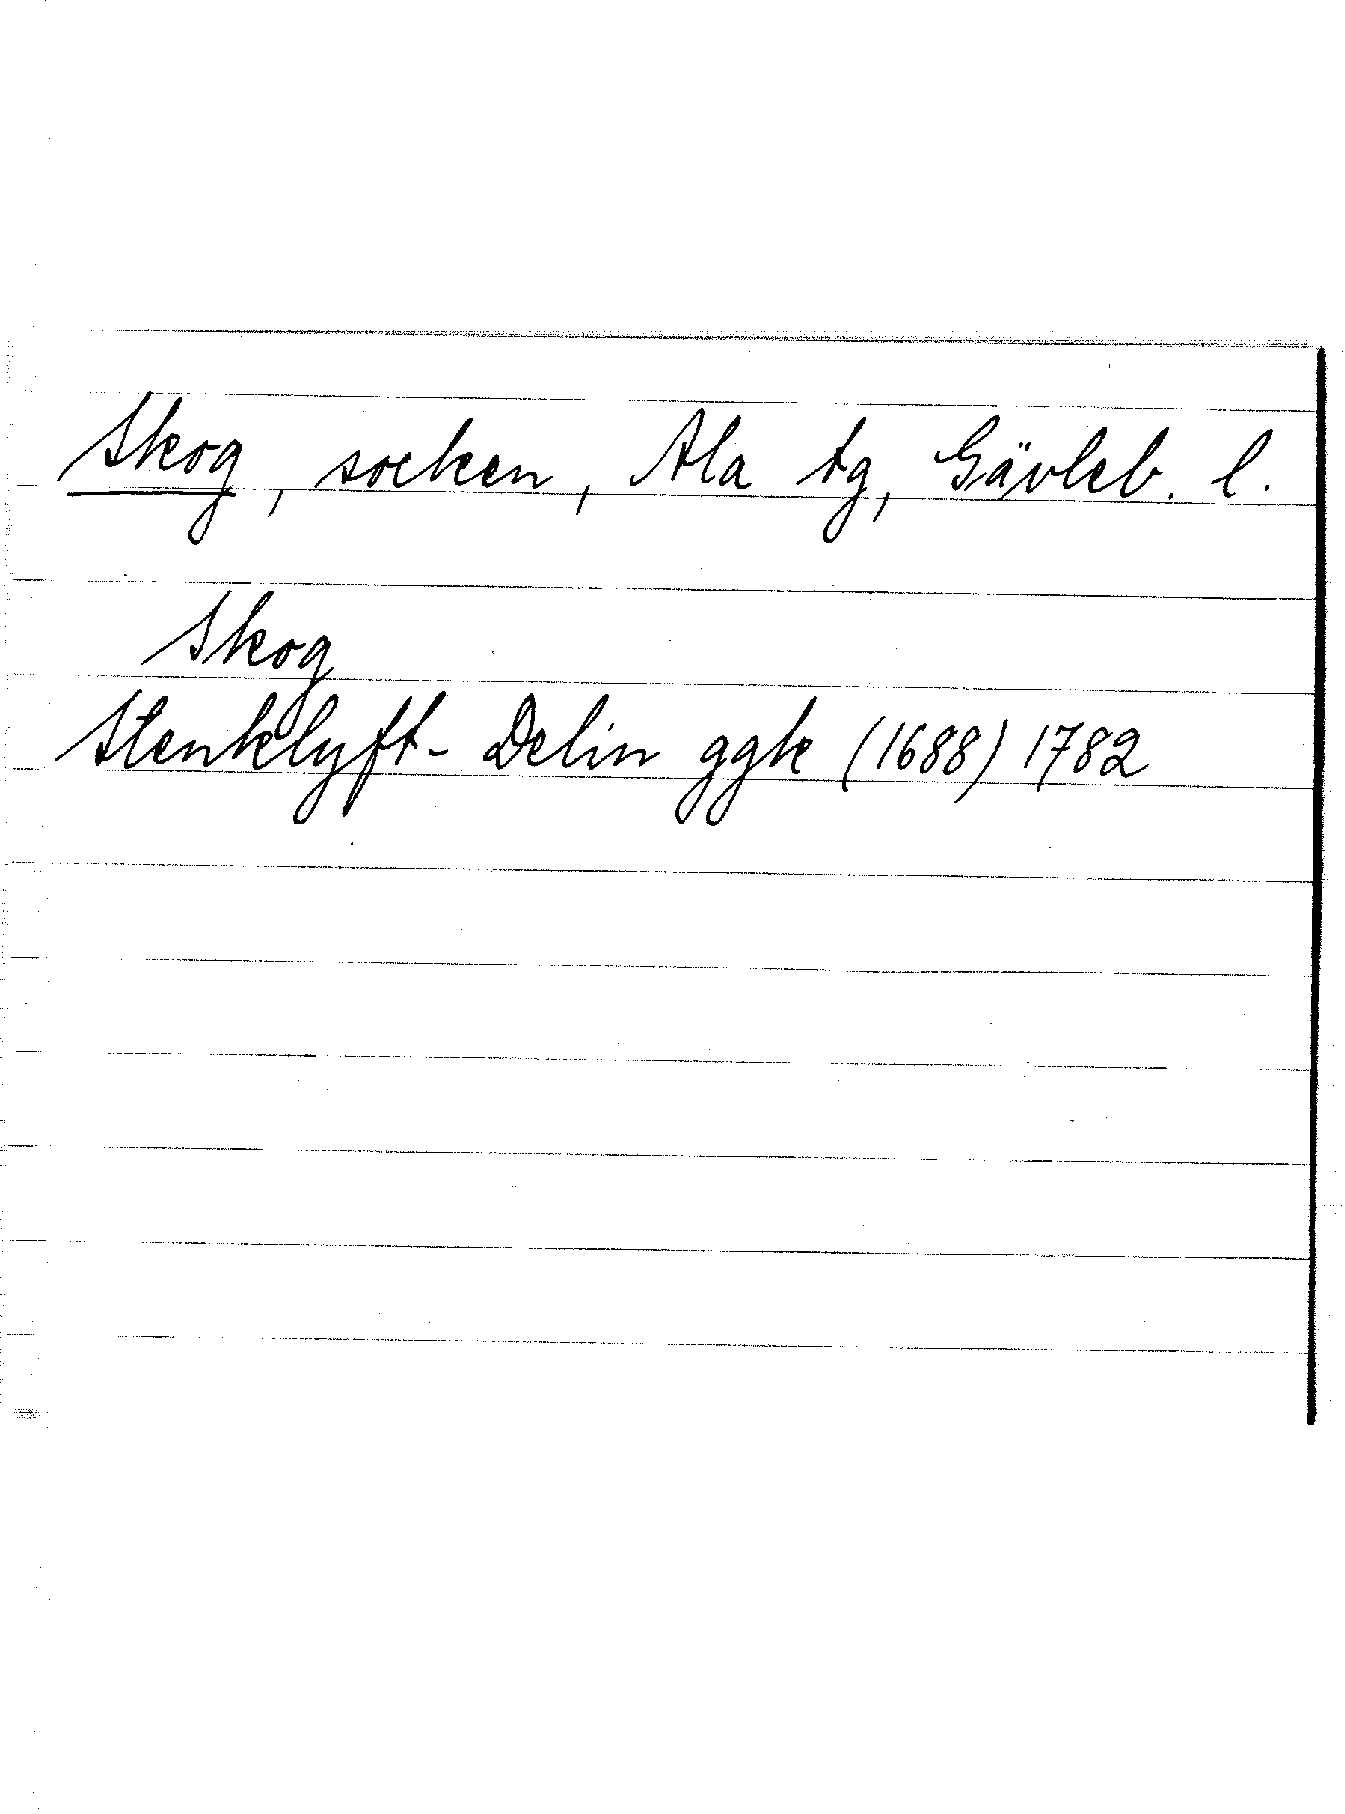 Skog, socken, Ala tg, Gävleb. l.
Skog
Stenklyft- Delin ggk (1688) 1782